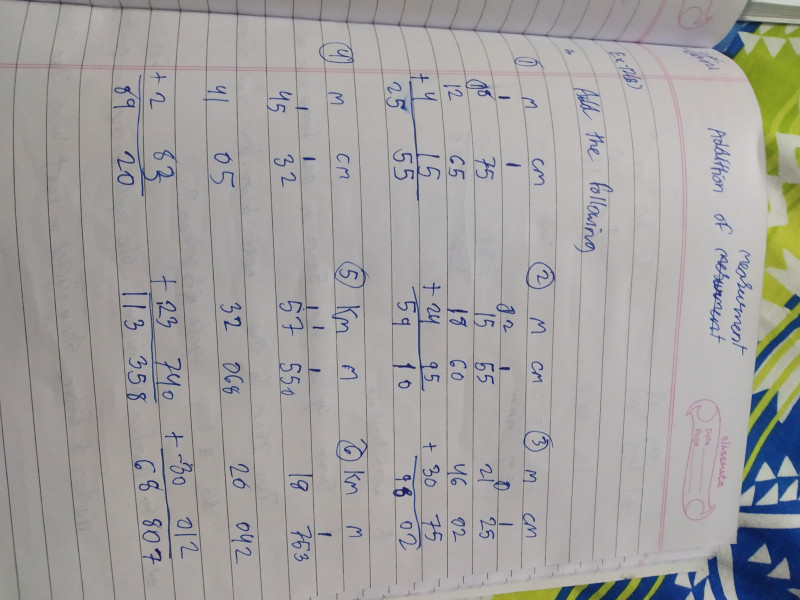 classmate
Date
Page
measurment
Addition of
Ex-7(B)
Add the following
① m cm ② m cm ③ m cm
1 1 2 1 1
75 15 55 21 25
12 65 18 60 46 02
+ 4 15 + 24 95 + 30 75
25 55 59 10 98 02
④ m cm ⑤ Km m ⑥ Km m
1 1 1 1 1 1
45 32 57 550 18 753
41 05 32 068 20 042
+ 2 83 + 23 740 + 30 012
89 20 113 358 68 807